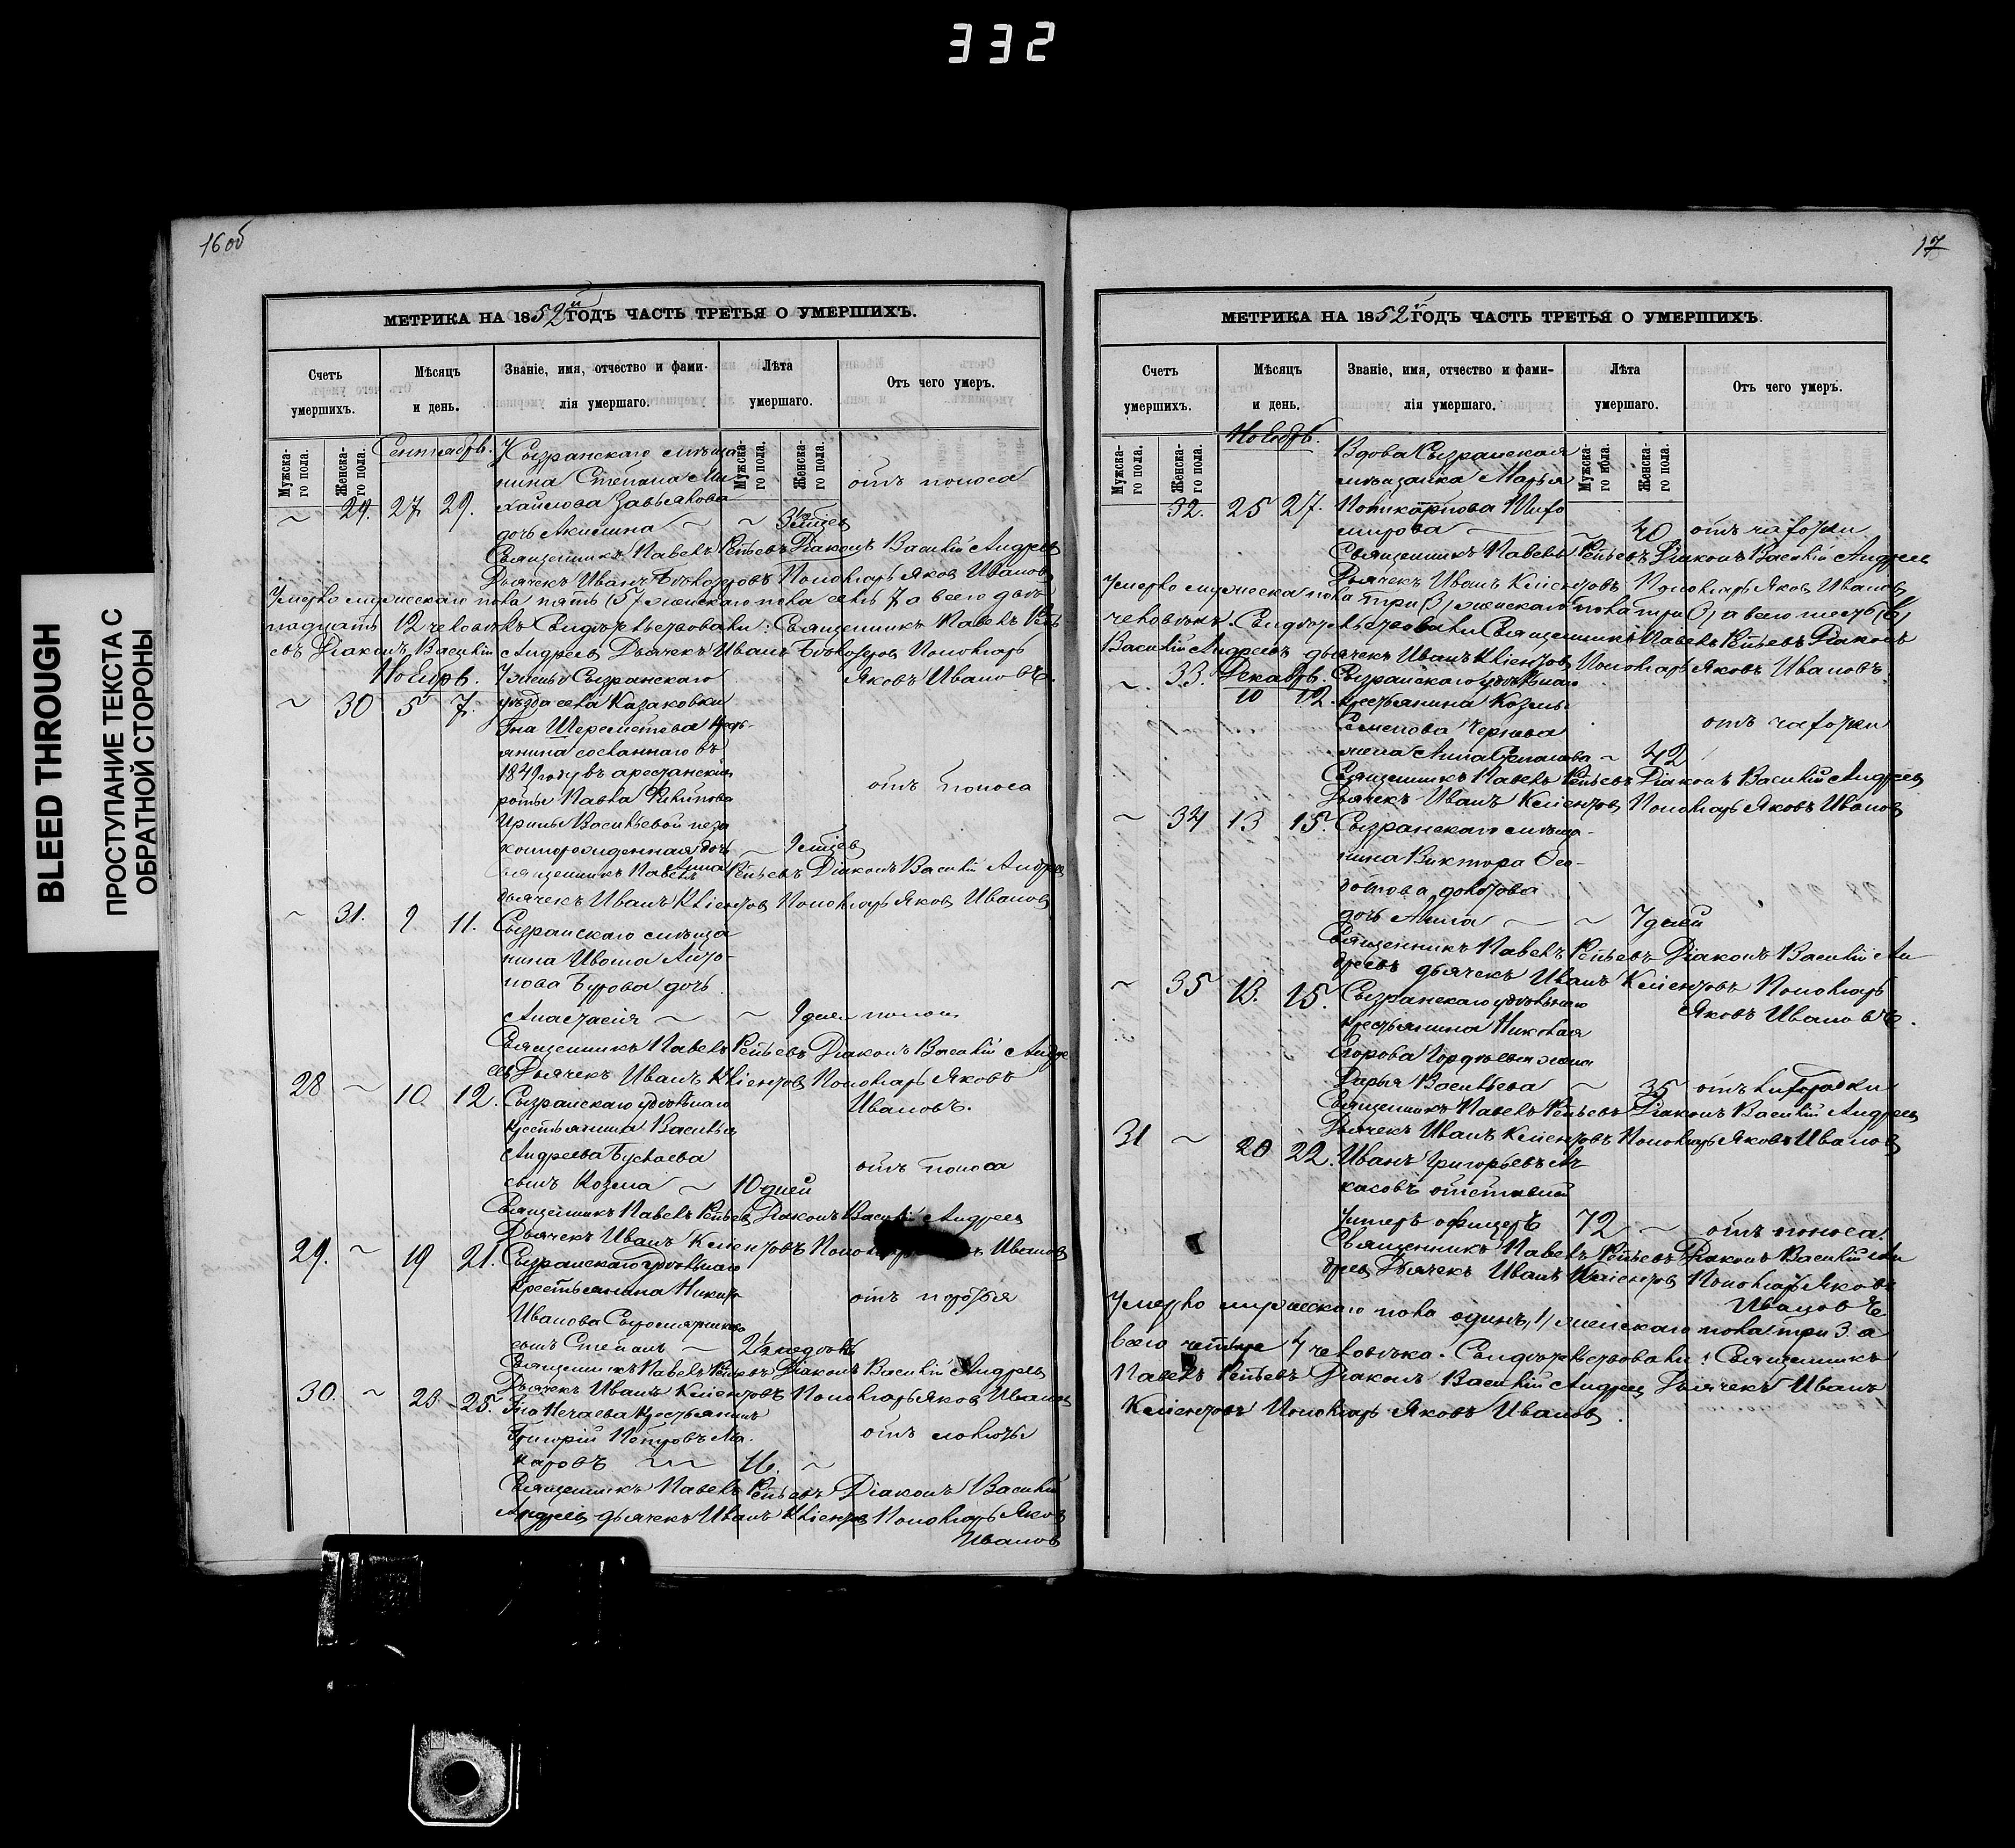 332
BLEED THROUGH
ПРОСТУПАНИЕ ТЕКСТА С
ОБРАТНОЙ СТОРОНЫ
16 об
МЕТРИКА НА 1852й ГОДЪ ЧАСТЬ ТРЕТЬЯ О УМЕРШИХЪ.
Счетъ умершихъ.
Мѣсяцъ и день.
Званіе, имя, отчество и фами-
лія умершаго.
Лѣта умершаго.
Отъ чего умеръ.
Мужска-
го пола.
Женска-
го пола.
Мужска-
го пола.
Женска-
го пола.
Сентябрь. У Сызранскаго мѣща
нина Степана Ми отъ поноса
~ 29. 27. 29. хайлова Завьялова
дочь Акилина ~ ~
Священникъ Павелъ Репьевъ Діаконъ Василій Андреев
Дьячекъ Иванъ Пономарь Яков Иванов
Умерло мужескаго пола пять (5) женскаго пола семь 7 а всего двѣ
надцать 12 человѣкъ Свидѣтельствовали: Священникъ Павелъ Репь
евъ Діаконъ Василій Андреев Дьячекъ Иванъ Пономарь
Яковъ Ивановъ.
Ноябрь. Сызранскаго
~ 30 5 7. уѣзда села Казаковки
Гна Шереметева кресть
янина сосланнаго въ
1849 году въ арестанскія
роты Павла Филипова отъ поноса
Ирины Васильевой неза
коннорожденная дочь
Анна ~ 9 мѣсяцев
Священникъ Павелъ Репьевъ Діаконъ Василій Андреев
дьячекъ Иванъ Клиентов Пономарь Яков Иванов
~ 31. 9 11. Сызранскаго мѣща
нина Ивана Анто-
нова Бурова дочь
Анастасія ~ ~ 9 дней
Священникъ Павелъ Репьевъ Діаконъ Василій Андре
ев Дьячекъ Иванъ Клиентов Пономарь Яковъ
Ивановъ.
28 ~ 10 12. Сызранскаго удѣльнаго
крестьянина Василья
Андреева отъ поноса
сынъ Козма ~ 10 дней
Священникъ Павелъ Репьев Діаконъ Василій Андреев
Дьячекъ Иванъ Клиентовъ Иванов
29. ~ 19 21. Сызранскаго удѣльнаго
крестьянина Никит
Иванова
сынъ Степанъ ~
Священникъ Павелъ Репьевъ Діаконъ Василій Андреев
Дьячекъ Иванъ Клиентовъ Пономарь Яков Иванов
30. ~ 23 25. Гна Нечаева крестьянинъ
Григорій Петровъ Ма
каровъ ~ 16. ~
Священникъ Павелъ Репьевъ Діаконъ Василій
Андреев дьячекъ Иванъ Клиентов Пономарь Яков
Иванов
17
МЕТРИКА НА 1852й ГОДЪ ЧАСТЬ ТРЕТЬЯ О УМЕРШИХЪ.
Счетъ умершихъ.
Мѣсяцъ и день.
Званіе, имя, отчество и фами-
лія умершаго.
Лѣта умершаго.
Отъ чего умеръ.
Мужска-
го пола.
Женска-
го пола.
Мужска-
го пола.
Женска-
го пола.
Ноябрь. Вдова Сызранская
мѣщанка Марья
32. 25 27. Поликарпова
~ 40 отъ чахотки
Священникъ Павелъ Репьевъ Діаконъ Василій Андреев
Дьячекъ Иванъ Клиентовъ Пономарь Яков Иванов
Умерло мужеска пола три 3, женскаго пола три 3, а всего шесть (6)
человѣкъ. Свидѣтельствовали Священникъ Павелъ Репьевъ Діаконъ
Василій Андреевъ дьячекъ Иванъ Клиентов Пономарь Яковъ Ивановъ.
~ 33. Декабрь. Сызранскаго удѣльнаго
10 12. крестьянина Козьмы
Семенова отъ чахотки
жена Анна ~ 42
Священникъ Павелъ Репьевъ Діаконъ Василій Андреев
Дьячекъ Иванъ Клиентов Пономарь Яковъ Иванов
~ 34 13 15. Сызранскаго мѣща-
нина Виктора
дочь Анна ~ ~ 7 дней
Священникъ Павелъ Репьевъ Діаконъ Василій Ан
дреевъ дьячекъ Иванъ Клиентовъ Пономарь
Яковъ Ивановъ.
~ 35 13. 15. Сызранскаго удѣльнаго
крестьянина Николая
Егорова Гордѣева жена
Дарья Васильева ~ 35 отъ лихорадки
Священникъ Павелъ Репьевъ Діаконъ Василій Андреев
Дьячекъ Иванъ Клиентовъ Пономарь Яковъ Иванов
31 ~ 20 22. Иванъ Григорьевъ Ар
касовъ отставной
Унтеръ офицеръ 72 ~ отъ поноса.
Священникъ Павелъ Репьевъ Діаконъ Василій Ан
дреев Дьячекъ Иванъ Клиентов Пономарь Яковъ
Ивановъ
Умерло мужескаго пола одинъ, 1, женскаго пола три 3 а
всего четыре 4 человѣка. Свидѣтельствовали: Священникъ
Павелъ Репьевъ Діаконъ Василій Андреев Дьячекъ Иванъ
Клиентовъ Пономарь Яковъ Иванов.